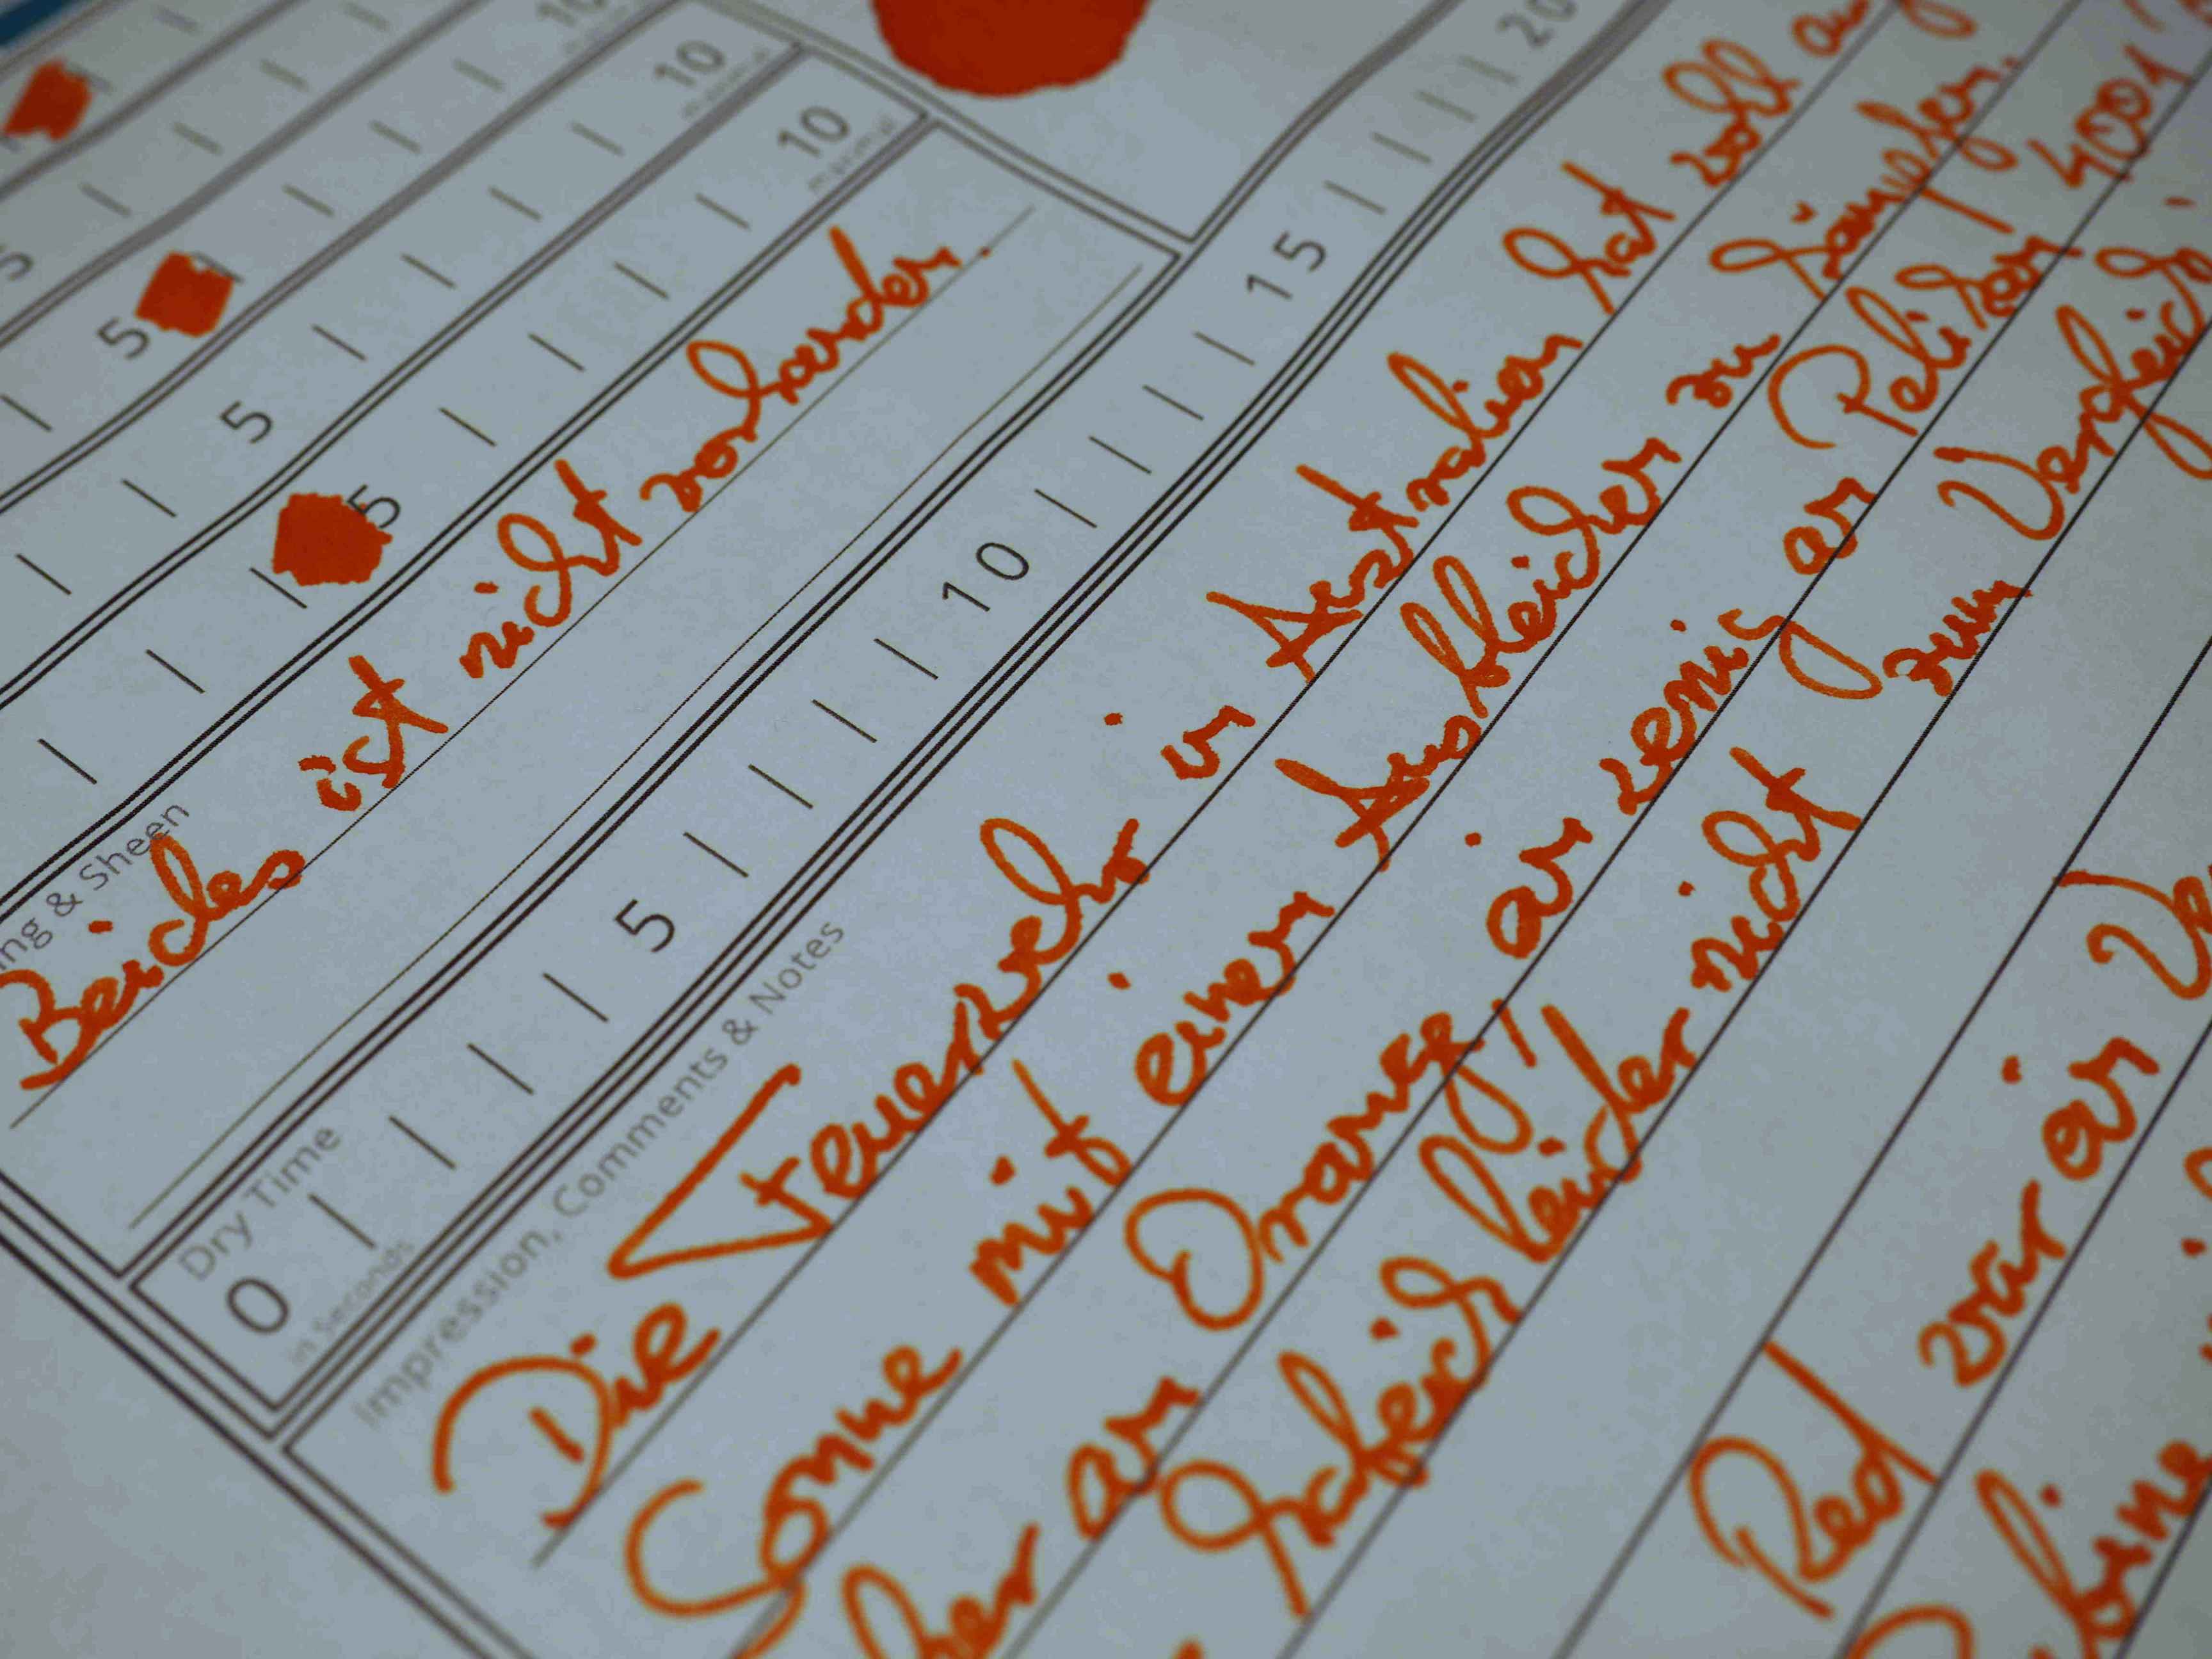 10
10 maximal
10 maximal
5
5
5
5
ng & Sheen
Beides ist nicht vorhanden.
Dry Time
0 5 10 15 20
in Seconds
Impression, Comments & Notes
Die Feuerwehr in Australien hat wohl
Sonne mit einen Ausbleichen zu kämpfen.
her an Orange, ein wenig an Pelikan 4001
habe ich leider nicht zum Vergleich.
Red war ein